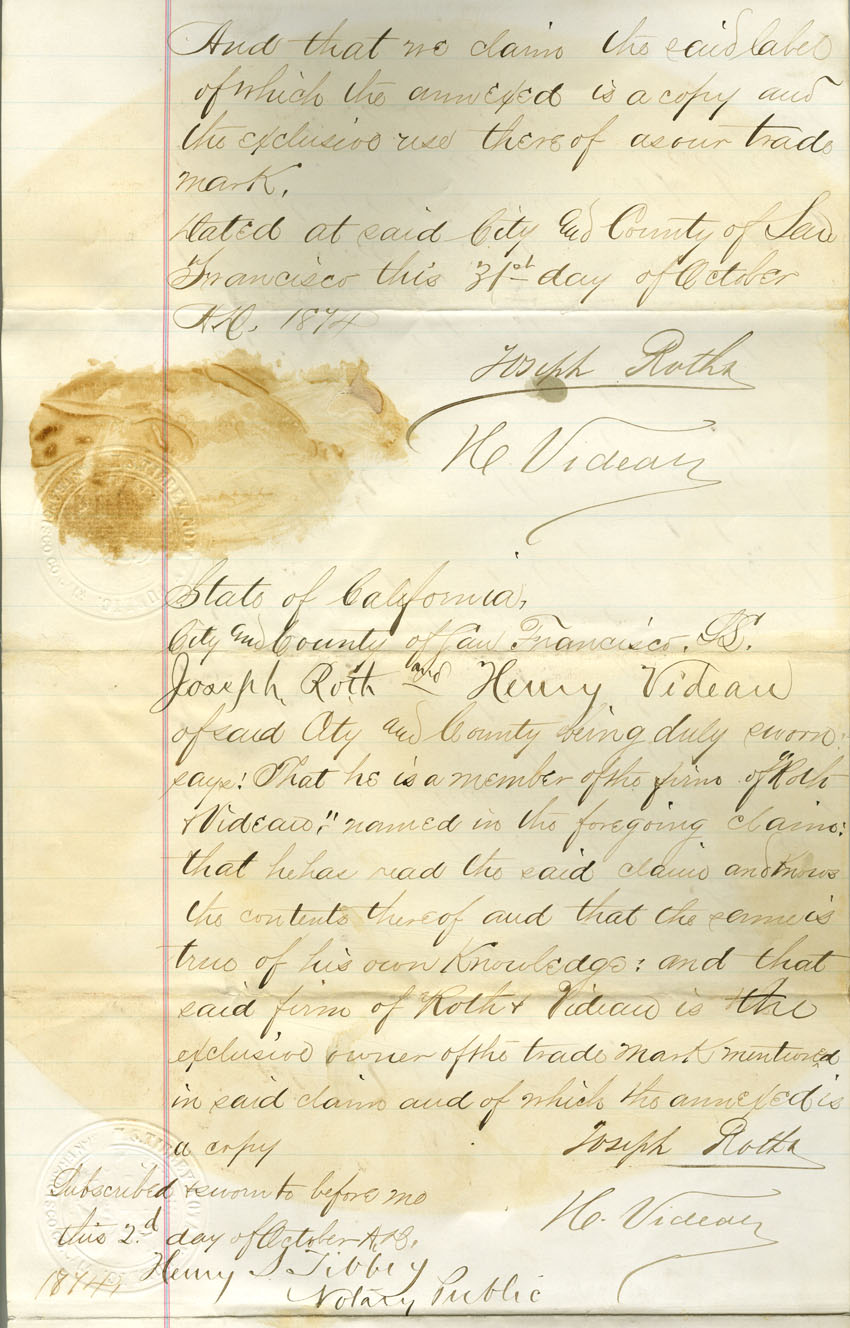 And that we claim the said label
of which the annexed is a copy and
the exclusive use thereof as our trade
mark.
Dated at said City and County of San
Francisco this 31st day of October
A.D. 1874
Joseph Roth
H Videau
State of California,
City and County of San Francisco. SS.
Joseph Roth and Henry Videau
of said City and County being duly sworn
says: That he is a member of the firm of "Roth
& Videau," named in the foregoing claim:
that he has read the said claim and knows
the contents thereof and that the same is
true of his own knowledge: and that
said firm of Roth & Videau is the
exclusive owner of the trade mark mentioned
in said claim and of which the annexed is
a copy
Joseph Roth
H. Videau
Subscribed & sworn to before me
this 2d day of October A.D.
1874.
Henry S. Tibbey
Notary Public